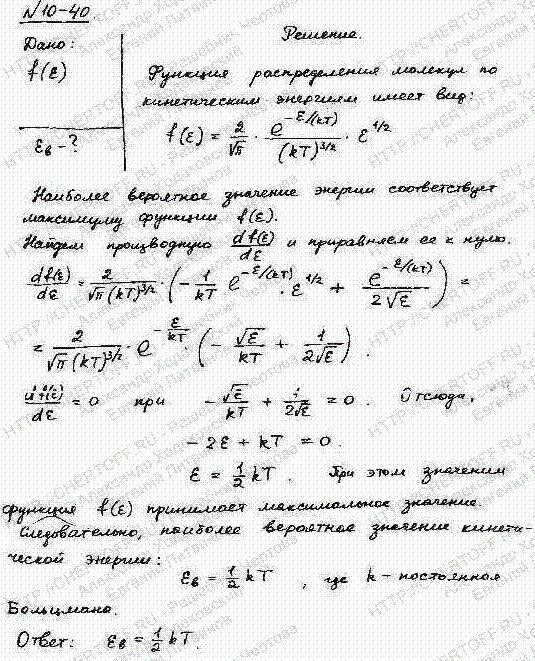 №10-40.
Дано: Решение.
f(ε) Функция распределения молекул по
кинетическим энергиям имеет вид:
εв-? f(ε) = 2/√π · e^(-ε/(kT))/(kT)^(3/2) · ε^(1/2)
Наиболее вероятное значение энергии соответствует
максимуму функции f(ε).
Найдем производную df(ε)/dε и приравняем ее к нулю.
df(ε)/dε = 2/(√π (kT)^(3/2)) · (-1/kT e^(-ε/(kT)) · ε^(1/2) + e^(-ε/(kT))/(2√ε)) =
= 2/(√π (kT)^(3/2)) · e^(-ε/kT) · (-√ε/kT + 1/(2√ε)).
df(ε)/dε = 0 при -√ε/kT + 1/(2√ε) = 0. Отсюда,
-2ε + kT = 0.
ε = 1/2 kT. При этом значении
функция f(ε) принимает максимальное значение.
Следовательно, наиболее вероятное значение кинети-
ческой энергии:
εв = 1/2 kT, где k - постоянная
Больцмана.
Ответ: εв = 1/2 kT.